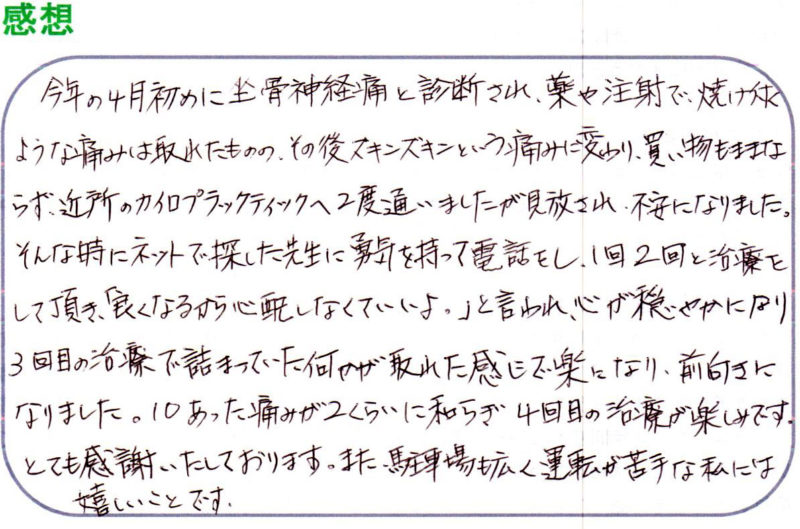 感想
今年の4月初めに坐骨神経痛と診断され、薬や注射で、焼け付く
ような痛みは取れたものの、その後ズキンズキンという痛みに変わり、買い物もままな
らず、近所のカイロプラックティックへ2度通いましたが見放され、不安になりました。
そんな時にネットで探した先生に勇気を持って電話をし、1回2回と治療を
して頂き、「良くなるから心配しなくていいよ。」と言われ、心が穏やかになり
3回目の治療で詰まっていた何かが取れた感じで楽になり、前向きに
なりました。10あった痛みが2くらいに和らぎ4回目の治療が楽しみです。
とても感謝いたしております。また、駐車場も広く運転が苦手な私には
嬉しいことです。